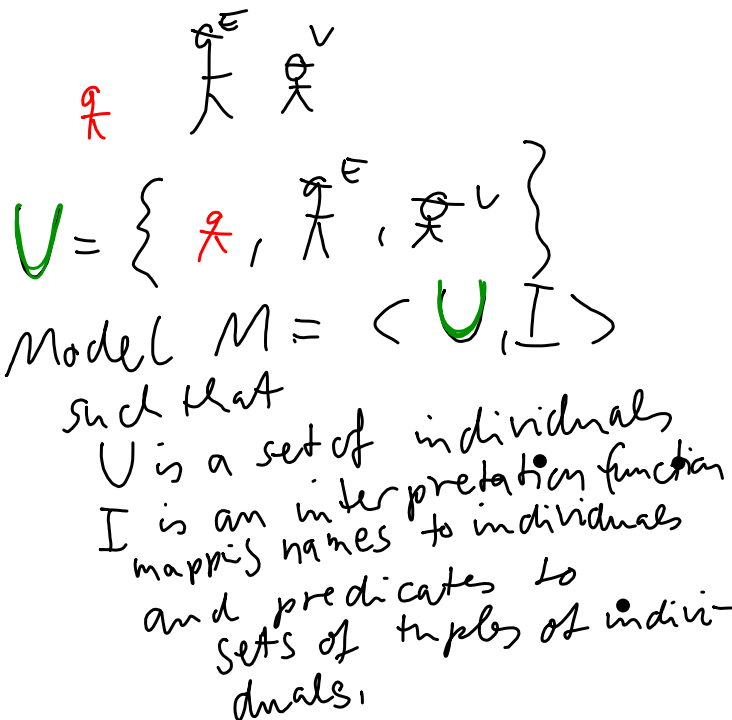 E V
U = { , E , V }
Model M = < U, I >
such that
U is a set of individuals
I is an interpretation function
mappis names to individuals
and predicates to
sets of tuples of indivi-
duals.